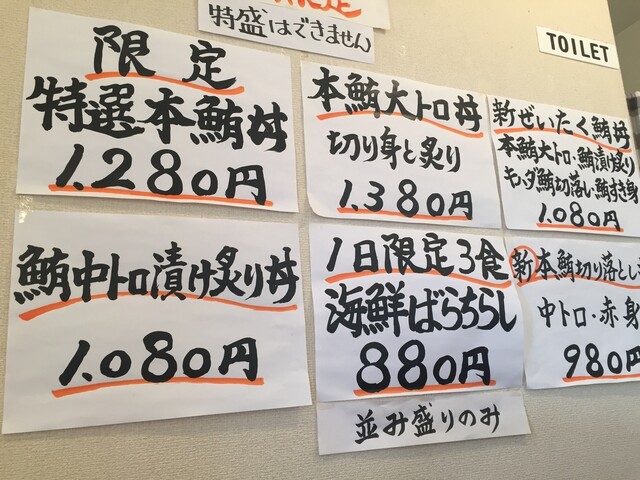 特盛はできません
TOILET
限定
特選本鮪丼
1.280円
本鮪大トロ丼
切り身と炙り
1.380円
新ぜいたく鮪丼
本鮪大トロ・鮪漬け炙り
キハダ鮪切落し・鮪すき身
1.080円
鮪中トロ漬け炙り丼
1.080円
1日限定3食
海鮮ばらちらし
880円
並み盛りのみ
新本鮪切り落とし
中トロ・赤身
980円